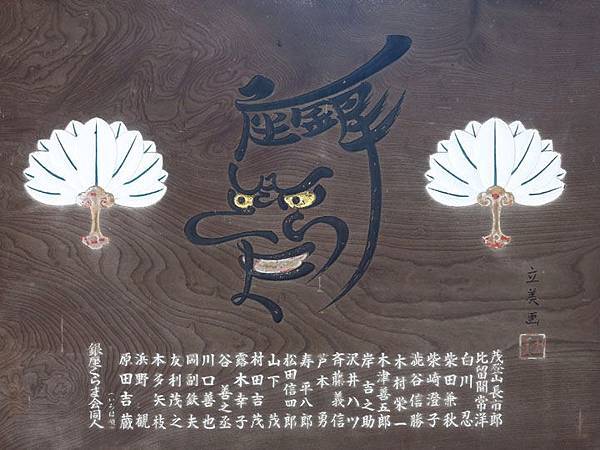 銀座
くらま会
立美画
茂登山長市郎
比留間常洋
白川忍
柴田兼秋
柴崎澄子
澁谷信勝
木村栄一
木津喜五郎
岸吉之助
沢井八ツ
斉藤義信
芦本勇
寿平八郎
松田信四郎
山下茂
村田吉茂
露木幸子
谷善之丞
川口善也
岡副鉄夫
友利茂之
本多矢枝
浜野観
原田吉蔵
銀座くらま会同人